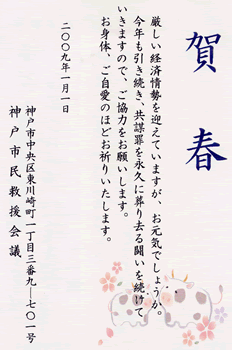 賀春
厳しい経済情勢を迎えていますが、お元気でしょうか。
今年も引き続き、共謀罪を永久に葬り去る闘いを続けて
いきますので、ご協力をお願いします。
お身体、ご自愛のほどお祈りいたします。
二〇〇九年一月一日
神戸市中央区東川崎町一丁目三番九―七〇一号
神戸市民救援会議